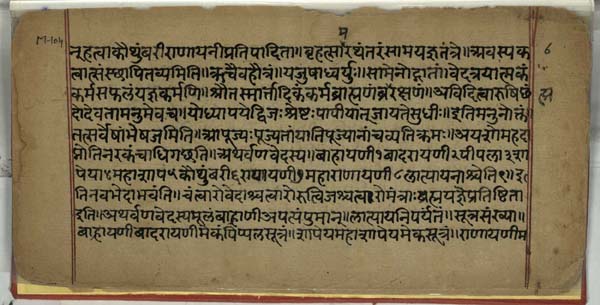 M-104
नूहत्वाकौथुंबरीराणायनीप्रतिपादिता॥बृहत्सारथंतरंसामयज्ञतंत्रे॥अवस्पक
त्वात्संस्छापितव्यमिति॥ऋचैवहौत्रं॥यजुषाध्वर्युः॥सामनोद्गाता॥वेदत्रयात्मकं
कर्मसफलंयज्ञकर्मणि॥श्रौतस्मार्त्तादिकंकर्मब्राह्मणंब्रह्मरक्षणं॥अविदित्वाऋषिछं
दोदेवतामनुमेवच॥योध्यापयेद्विजःश्रेष्टःपापीयान्जायतेसुधीः॥इतिमनुनोक्तं
तत्सर्वेषांभेषजमिति॥आपूज्यःपूज्यतांयातिपूज्यानांचव्यतिक्रमः॥अयशोमहद
प्नोतिनरकंचाधिगछति॥अथर्वणवेदस्य॥बाहायणी१बादरायणी२पीपला३शा
पेया४महाशाप५कौथुंबरी६रायायणी७महाराणायणी८लात्यायनाश्चेति९॥इ
तिनवभेदाभवंति॥चत्वारोवेदाश्चत्वारोरुत्विजश्चत्वारोमंत्राःब्रह्मयज्ञेप्रतिष्ठिता
इति॥अथर्वणवेदस्यमूलंबाहाणीअपत्यंपुमान्॥लात्यायनिपर्यंतं॥सूत्रसंख्या॥
बाहायणीबादरायणीमेकंपिप्पलसूत्रं॥शापेयमहाशापेयमेकसूत्रं॥राणायणीम